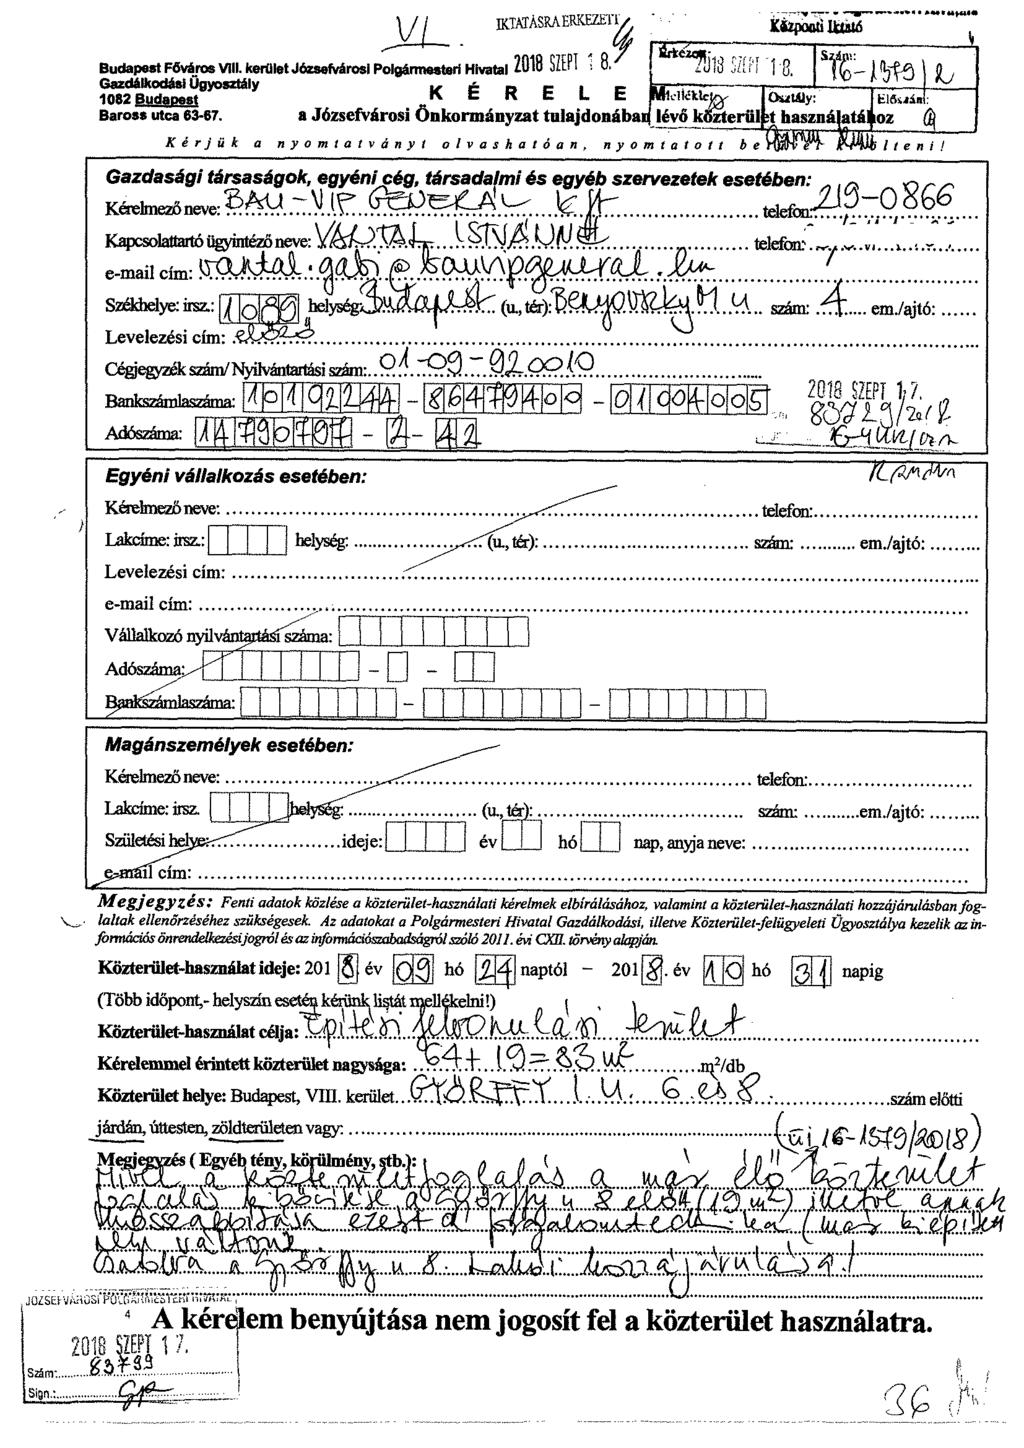 VI
IKTATÁSRA ÉRKEZETT
2018 SZEPT 18.
Központi Iktató
Érkezett: 2018 SZEPT 18.
Szám: 16-1379/2
Melléklet:
Osztály:
Előszám:
Budapest Főváros VIII. kerület Józsefvárosi Polgármesteri Hivatal
Gazdálkodási Ügyosztály
1082 Budapest
Baross utca 63-67.
K É R E L E M
a Józsefvárosi Önkormányzat tulajdonában lévő közterület használatához
Kérjük a nyomtatványt olvashatóan, nyomtatott betűvel kitölteni!
Gazdasági társaságok, egyéni cég, társadalmi és egyéb szervezetek esetében:
Kérelmező neve: BAU-VIP GENERÁL Kft telefon: 219-0866
Kapcsolattartó ügyintéző neve: VANTAL ISTVÁNNÉ telefon:
e-mail cím: vantal.gabi@bauvipgeneral.hu
Székhelye: irsz.: 1089 helység: Budapest (u., tér): Benyovszky M u. szám: 4 em./ajtó:
Levelezési cím: előző
Cégjegyzék szám/ Nyilvántartási szám: 01-09-920010
Bankszámlaszáma: 10192244 - 86479400 - 01004005
Adószáma: 14790797 - 2 - 42
2018 SZEPT 17.
83729/2018
Egyéni vállalkozás esetében:
Kérelmező neve: telefon:
Lakcíme: irsz.: helység: (u., tér): szám: em./ajtó:
Levelezési cím:
e-mail cím:
Vállalkozó nyilvántartási száma:
Adószáma: - -
Bankszámlaszáma: - -
Magánszemélyek esetében:
Kérelmező neve: telefon:
Lakcíme: irsz. helység: (u., tér): szám: em./ajtó:
Születési helye: ideje: év hó nap, anyja neve:
e-mail cím:
Megjegyzés: Fenti adatok közlése a közterület-használati kérelmek elbírálásához, valamint a közterület-használati hozzájárulásban fog-
laltak ellenőrzéséhez szükségesek. Az adatokat a Polgármesteri Hivatal Gazdálkodási, illetve Közterület-felügyeleti Ügyosztálya kezelik az in-
formációs önrendelkezési jogról és az információszabadságról szóló 2011. évi CXII. törvény alapján.
Közterület-használat ideje: 2018 év 09 hó 24 naptól - 2018. év 10 hó 31 napig
(Több időpont,- helyszín esetén kérünk listát mellékelni!)
Közterület-használat célja: Építési felvonulási terület
Kérelemmel érintett közterület nagysága: 64+19=83 m² m²/db
Közterület helye: Budapest, VIII. kerület GYÖRFFY I. U. 6 és 8 szám előtti
járdán, úttesten, zöldterületen vagy: (üi 16-1379/2018)
Megjegyzés ( Egyéb tény, körülmény, stb.):
Mivel a közterületfoglalás a már élő közterület
foglalás kibővítése a Györffy u 8 előtt (19 m²) illetve annak
ezért a
nem változna.
Csatolva a Györffy u 8. Lakói hozzájárulása!
A kérelem benyújtása nem jogosít fel a közterület használatra.
4
JÓZSEFVÁROSI POLGÁRMESTERI HIVATAL
2018 SZEPT 17.
Szám: 83799
Sign.:
36